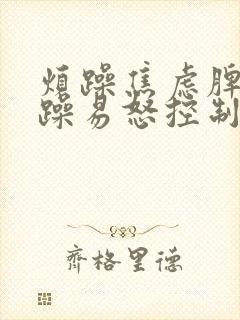 煩躁焦虑脾
躁易怒控制
齊格里德